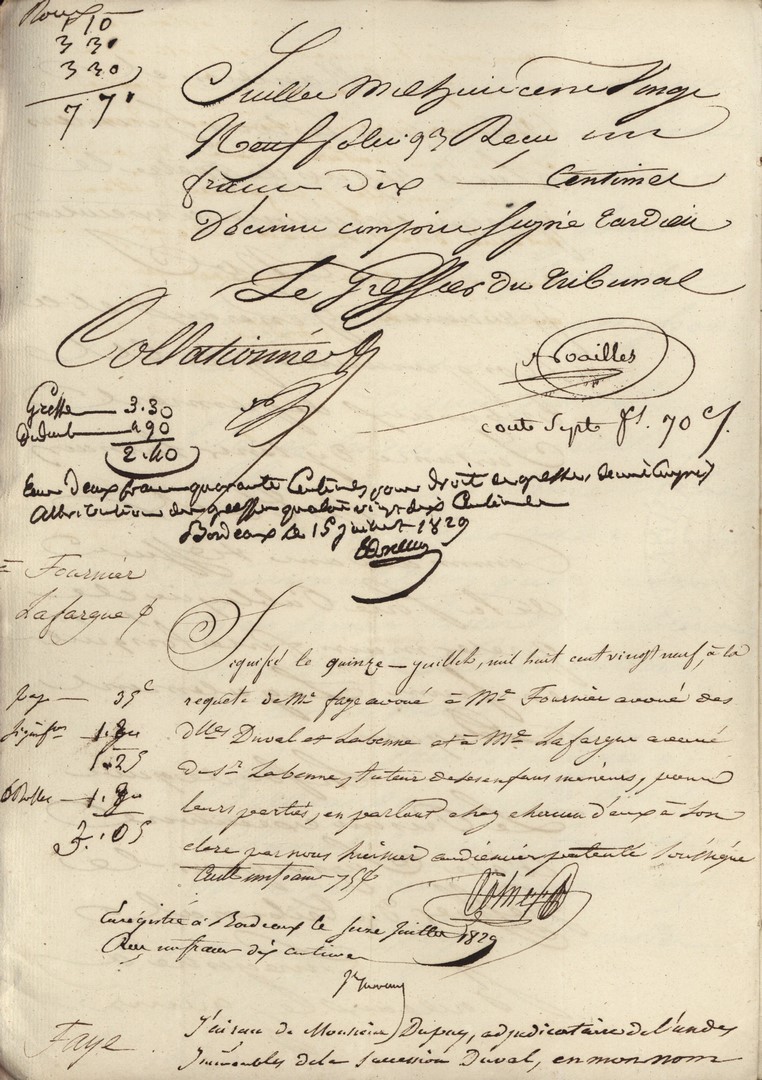 1 10
3 30
3 30
7 7
Juillet mil huit cent vingt
Neuf folio 93 Reçu un
franc dix centimes
Décime compris signé Tardieu
Le Greffier du tribunal
Collationné
Avoailles
coute sept fs. 70 cs.
Greffe 3.30
90
2.40
deux francs quarante centimes pour droit de greffe,
Attribution du greffier quatre vingt dix centimes
Bordeaux le 15 juillet 1829
Fournier
Lafargue
Signifié le quinze juillet, mil huit cent vingt neuf, à la
requete de Me faye avoué à Me Fournier avoué des
dlles Duval et Labenne et à Me Lafargue avoué
du sr. Labenne, tuteur de ses enfans mineurs, pour
leurs parties, en parlant chez chacun d'eux à son
clerc par nous huissier audiencier patenté soussigné
Cout un franc 75
pap 35c
1.25
3.05
Enregistré à Bordeaux le seize juillet 1829
Reçu un franc dix centimes
Faye
J'ai de Monsieur Dupuy, adjudicataire de l'un des
immeubles de la succession Duval, en mon nom